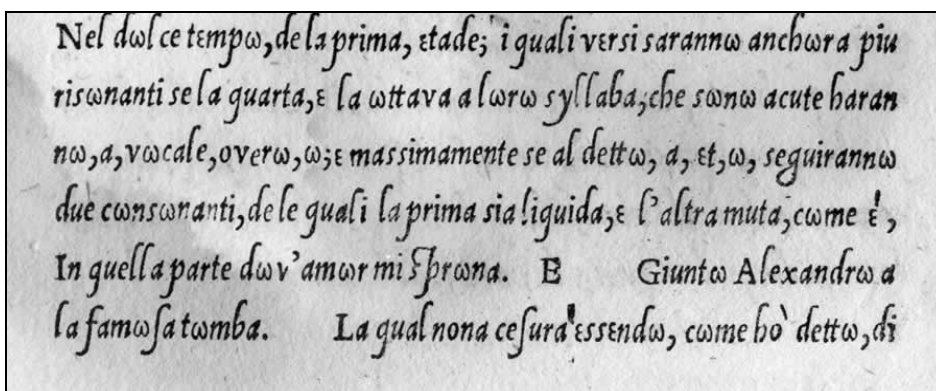 Nel dωlce tεmpω, de la prima, εtade; i quali vεrsi sarannω anchωra piu
risωnanti se la quarta, ε la ωttava a lωrω syllaba, che sωnω acute haran
nω, a, vωcale, overω, ω; ε massimamente se al dettω, a, εt, ω, seguirannω
due cωnsωnanti, de le quali la prima sia liquida, ε l'altra muta, cωme ὲ,
In quella parte dωv'amωr mi sprωna. E Giuntω Alexandrω a
la famωsa tωmba. La qual nona cesura εssεndω, cωme hò dettω, di